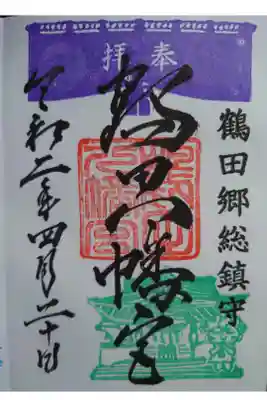 奉拝
鶴田郷総鎮守
鶴田八幡宮
令和二年四月二十日